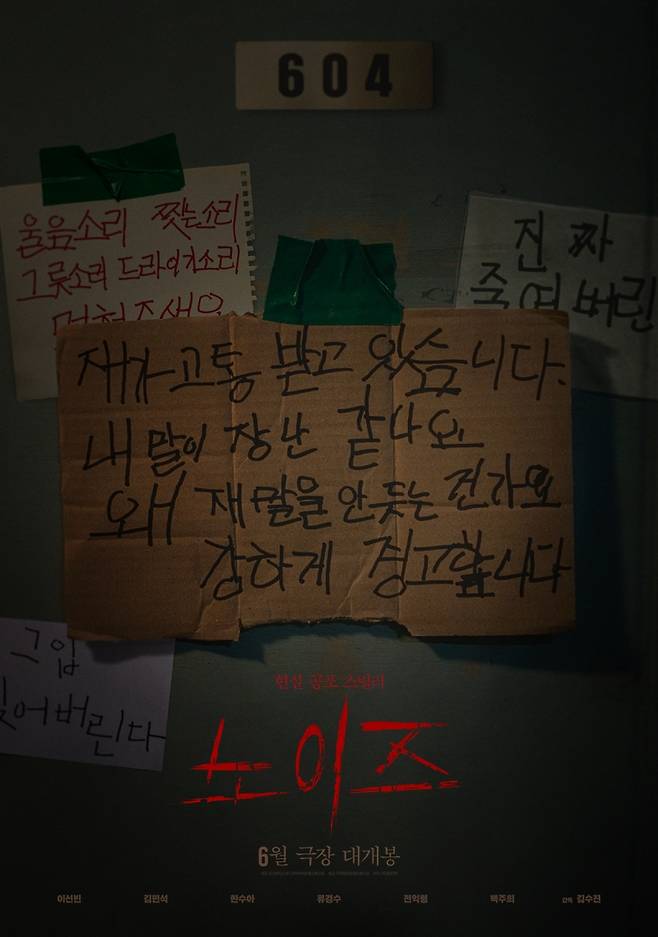 604
울음소리 찢는소리
그릇소리 드라이기소리
멈춰주세요
진짜
죽여버린
재가 고통 받고 있습니다.
내 말이 장난 같나요
왜 재 말을 안 듯는 건가요
강하게 경고합니다
그입
찢어버린다
현실 공포 스릴러
노이즈
6월 극장 대개봉
이선빈 김민석 한수아 류경수 전익령 백주희 감독 김수진